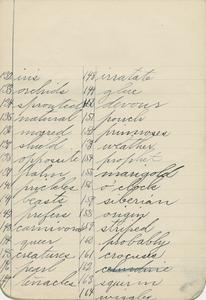 132 iris
133 orchids
134 sprouted
135 natural
136 ingred
137 shield
138 opposite
139 palm
140 prickles
141 beasts
142 prefers
143 carnivorous
144 queer
145 creatures
pearl
enacles
148 irratate
149 glue
devour
151 pouch
152 primroses
153 weather
154 prophet
155 marigold
156 o'clock
157 siberian
158 origin
159 striped
160 probably
161 crocuses
162
163 squr in
164 wiggles